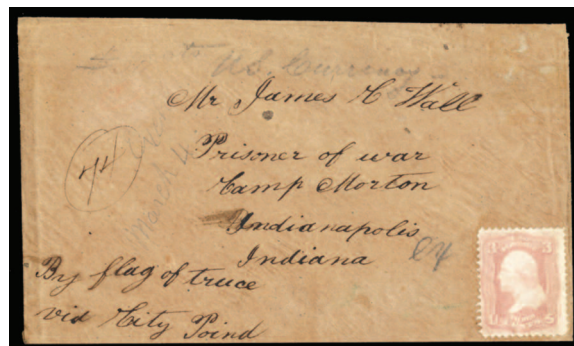 U.S. Currency
Mr James H Wall
74
Prisoner of war
Camp Morton
Indianapolis
Indiana
By flag of truce
via City Poind
3 3
U S